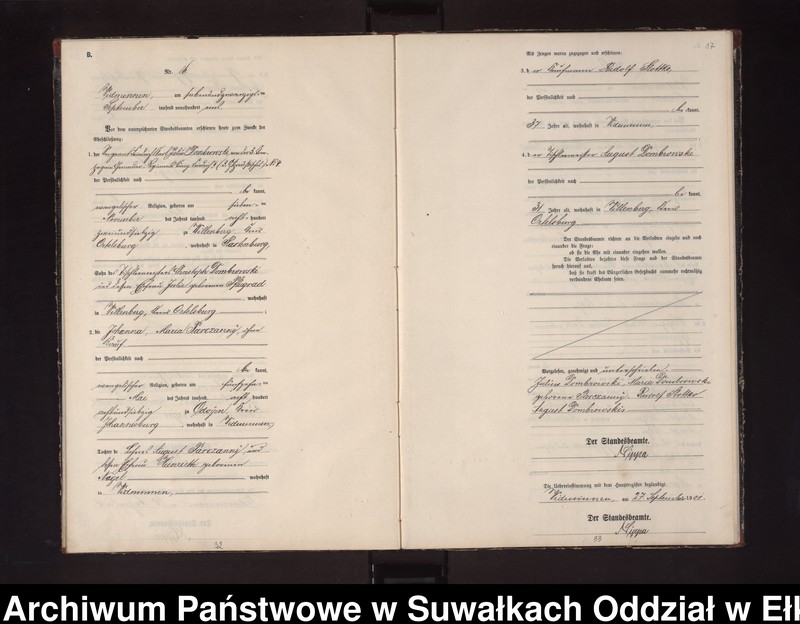 B.
Nr. 16
Widminnen, am siebenundzwanzigsten
September tausend neunhundert
Vor dem unterzeichneten Standesbeamten erschienen heute zum Zwecke der
Eheschließung:
1. der Dombrowski
der Persönlichkeit nach
be kannt,
evangelischer Religion, geboren am
November des Jahres tausend acht hundert
zweiundsiebzig zu Willenberg, Kreis
Ortelsburg, wohnhaft in Rastenburg,
Sohn des Dombrowski
und dessen Ehefrau geborenen
wohnhaft
in Willenberg, Kreis Ortelsburg;
2. die Johanna, Maria Parczanny, ohne
Beruf
der Persönlichkeit nach
be kannt,
evangelischer Religion, geboren am fünfzehnten
Mai des Jahres tausend acht hundert
achtundsiebzig zu Odoyen, Kreis
Johannisburg, wohnhaft in Widminnen,
Tochter des August Parczanny und
Ehefrau Henriette geborenen
Nagel wohnhaft
in Widminnen,
32
37
Als Zeugen waren zugezogen und erschienen:
3. der Kaufmann Rudolf
der Persönlichkeit nach
be kannt,
37 Jahre alt, wohnhaft in Widminnen,
4. der August Dombrowski
der Persönlichkeit nach
be kannt,
31 Jahre alt, wohnhaft in Willenberg, Kreis
Ortelsburg.
Der Standesbeamte richtete an die Verlobten einzeln und nach
einander die Frage:
ob sie die Ehe mit einander eingehen wollen.
Die Verlobten bejahten diese Frage und der Standesbeamte
sprach hierauf aus,
daß sie kraft des Bürgerlichen Gesetzbuchs nunmehr rechtmäßig
verbundene Eheleute seien.
Vorgelesen, genehmigt und unterschrieben
Julius Dombrowski, Maria Dombrowski
geborene Parczanny, Rudolf
August Dombrowski
Der Standesbeamte.
Die Uebereinstimmung mit dem Hauptregister beglaubigt.
Widminnen, am 27 September 1901
Der Standesbeamte.
33
Archiwum Państwowe w Suwałkach Oddział w Ełk